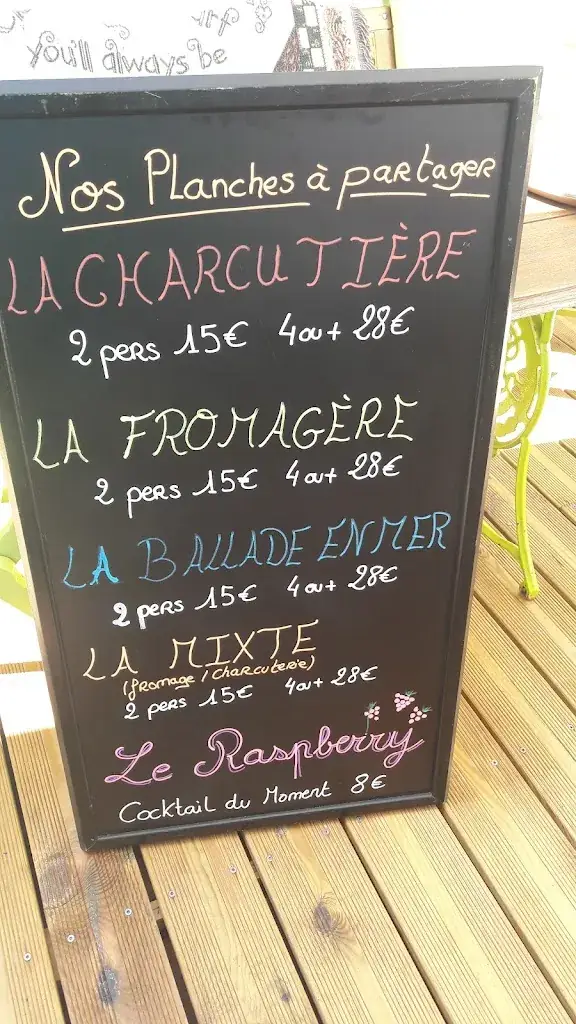 you'll always be
Nos Planches à partager
LA CHARCUTIÈRE
2 pers 15€ 4 ou + 28€
LA FROMAGÈRE
2 pers 15€ 4 ou + 28€
LA BALLADE EN MER
2 pers 15€ 4 ou + 28€
LA MIXTE
(fromage / charcuterie)
2 pers 15€ 4 ou + 28€
Le Raspberry
Cocktail du Moment 8€